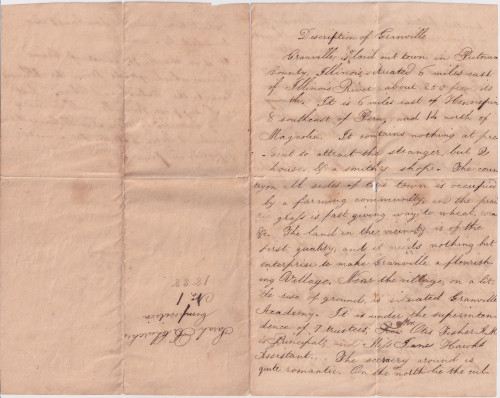 Description of Granville
Granville, a laid out town in Putnam
County, Illinois situated 6 miles east
of Illinois River about 200 from its
mouth. It is 6 miles east of Hennepin
8 southeast of Peru, and 14 north of
Magnolia. It contains nothing at pre-
-sent to attract the stranger, but 20
houses & a smithy shop. The coun
upon all sides of the town is occupied
by a farming community, and the prai
rie grass is fast giving way to wheat,
&c. The land in the vicinity is of the
first quality, and it needs nothing but
enterprise to make Granville a flourish
ing Village. Near the village, on a lit
tle rise of ground, is situated Granville
Academy. It is under the superinten-
dence of 7 trustees, Mr. Otis Fisher A.M.
is Principal, and Miss Hawks
Assistant. The scenery around is
quite romantic. On the north lie the cul
Sarah
Composition
No. 1
1838